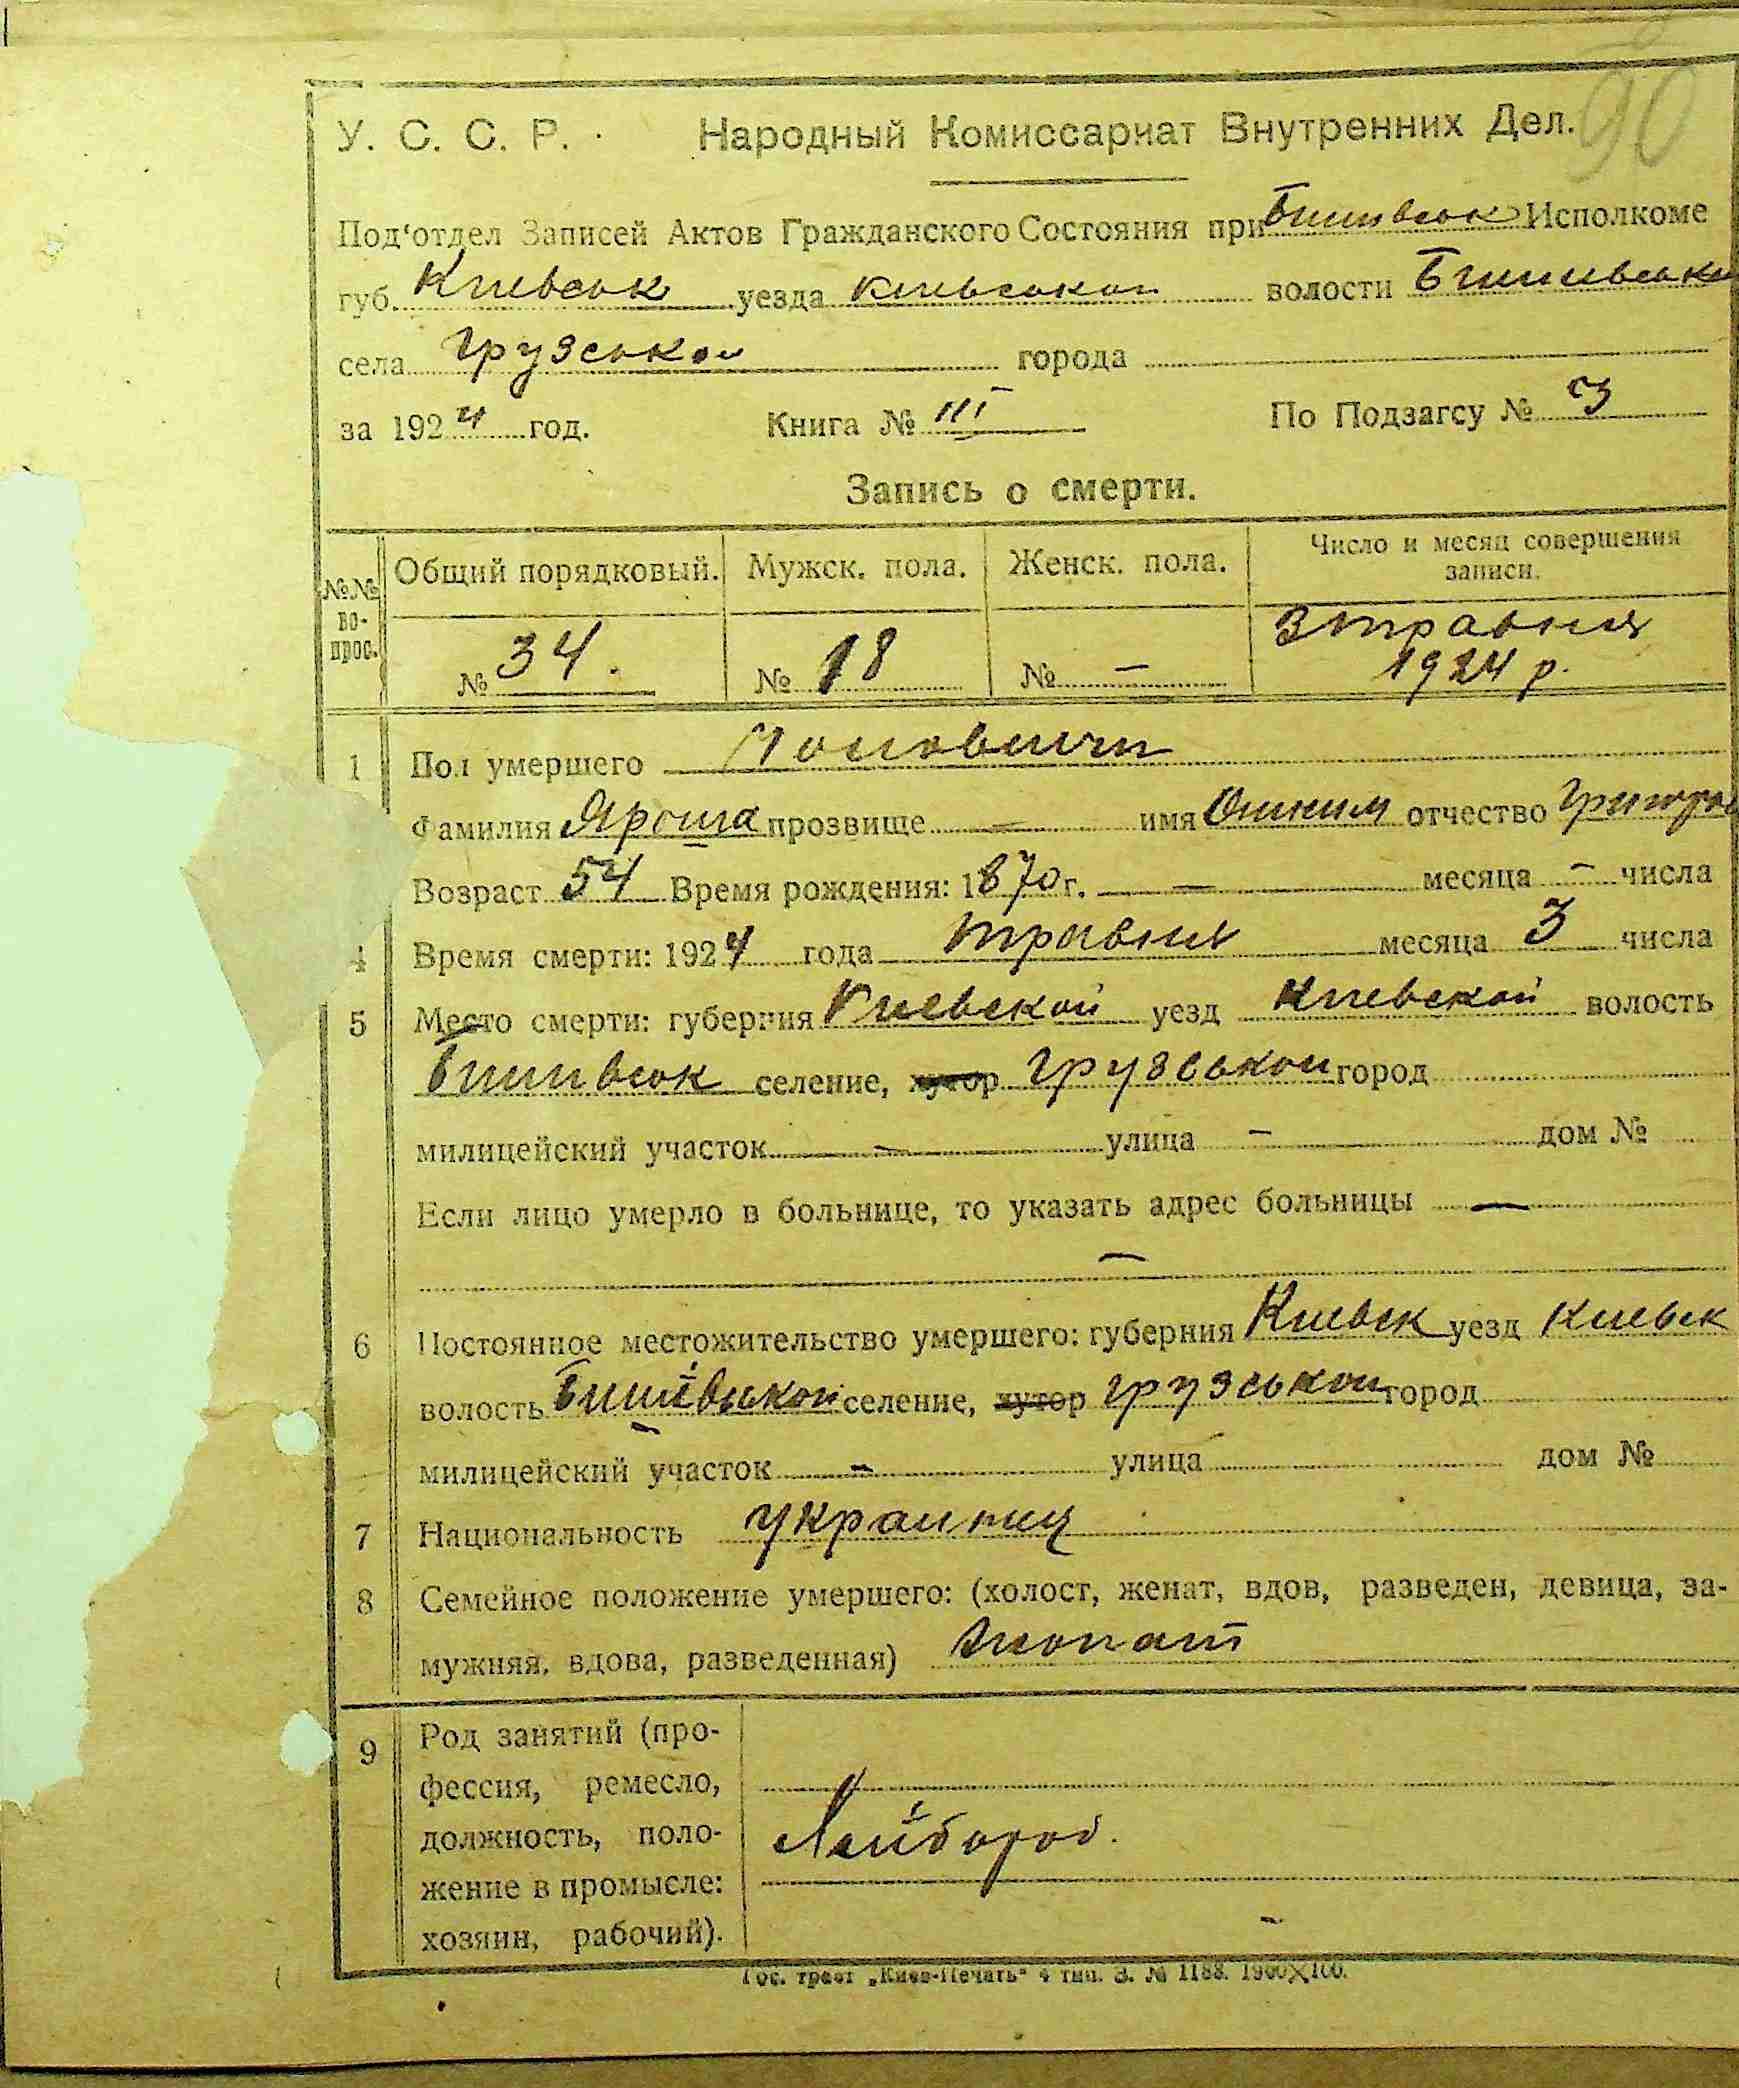 90
У. С. С. Р. Народный Комиссариат Внутренних Дел.
Под'отдел Записей Актов Гражданского Состояния при Бишівськ Исполкоме
губ. Киевськ уезда Киевськои волости Бишивськ
села Грузськои города
за 1924 год. Книга № III По Подзагсу № 3
Запись о смерти.
№№ во- прос. Общий порядковый. Мужск. пола. Женск. пола. Число и месяц совершения записи.
№ 34. № 18 № — 3 травня 1924 р.
1 Пол умершего Чоловичи
Фамилия Яроша прозвище — имя отчество Григоров
Возраст 54 Время рождения: 1870 г. — месяца — числа
4 Время смерти: 1924 года травня месяца 3 числа
5 Место смерти: губерния Киевской уезд Киевской волость
Бишивськ селение, хутор Грузськои город
милицейский участок — улица — дом №
Если лицо умерло в больнице, то указать адрес больницы —
—
6 Постоянное местожительство умершего: губерния Киевск уезд Киевск
волость Бишівськои селение, хутор Грузськои город
милицейский участок — улица дом №
7 Национальность Украинец
8 Семейное положение умершего: (холост, женат, вдов, разведен, девица, за-
мужняя, вдова, разведенная) Жонат
9 Род занятий (про-
фессия, ремесло,
должность, поло-
жение в промысле:
хозяин, рабочий).
Гос. трест „Киев-Печать“ 4 тип. З. № 1188. 1900×100.